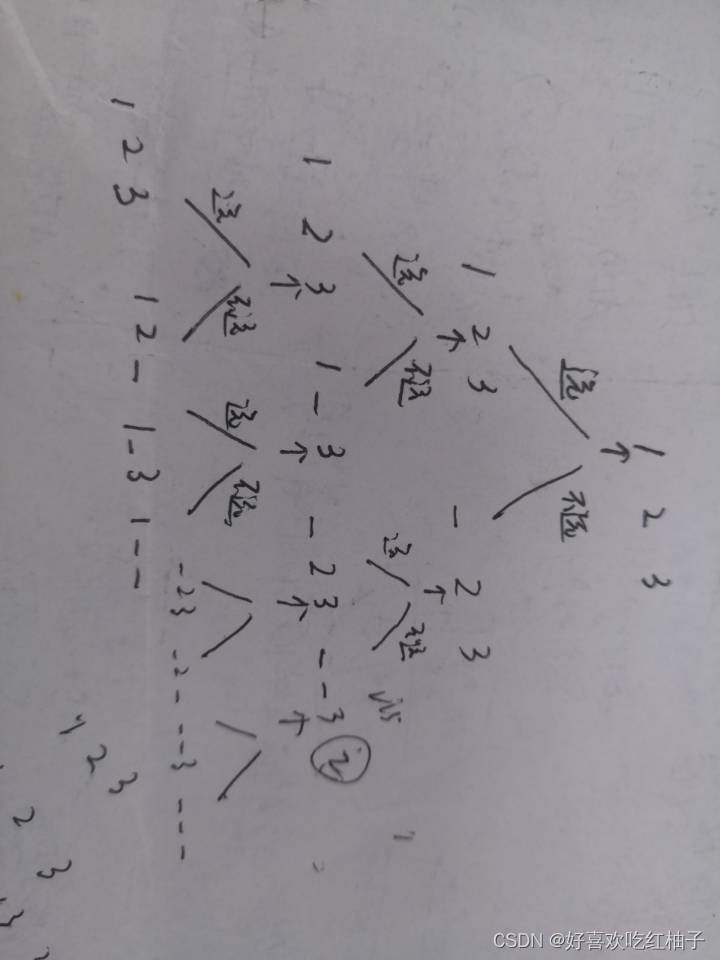 1 2 3
选 不选
1 2 3 - 2 3
选 不选 选 不选
1 2 3 1 - 3 - 2 3 - - 3
选 不选 选 不选
1 2 3 1 2 - 1 - 3 1 - - - 2 3 - 2 - - - 3 - - -
2 3
2 3
3
CSDN @好喜欢吃红柚子